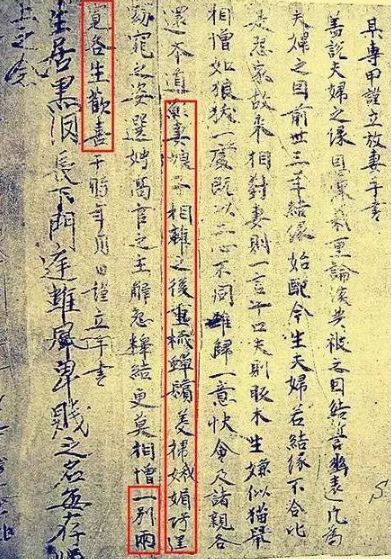 某專甲謹立放妻手書
蓋説夫婦之緣恩深義重論談共被之因結誓幽遠凡為
夫婦之因前世三年結緣始配今生夫婦若結緣不合比
是怨家故來相對妻則一言十口夫則眅木生嫌似猫鼠
相憎如狼犺一處既以二心不同難歸一意快會及諸親各
還本道願妻娘子相離之後重梳蟬鬢美掃娥媚巧逞
窈窕之姿選娉高官之主解怨釋結更莫相憎一別兩
寬各生歡喜于時年月日謹立手書
生居黑 長下門庭雖 卑賤之名 存
上之念